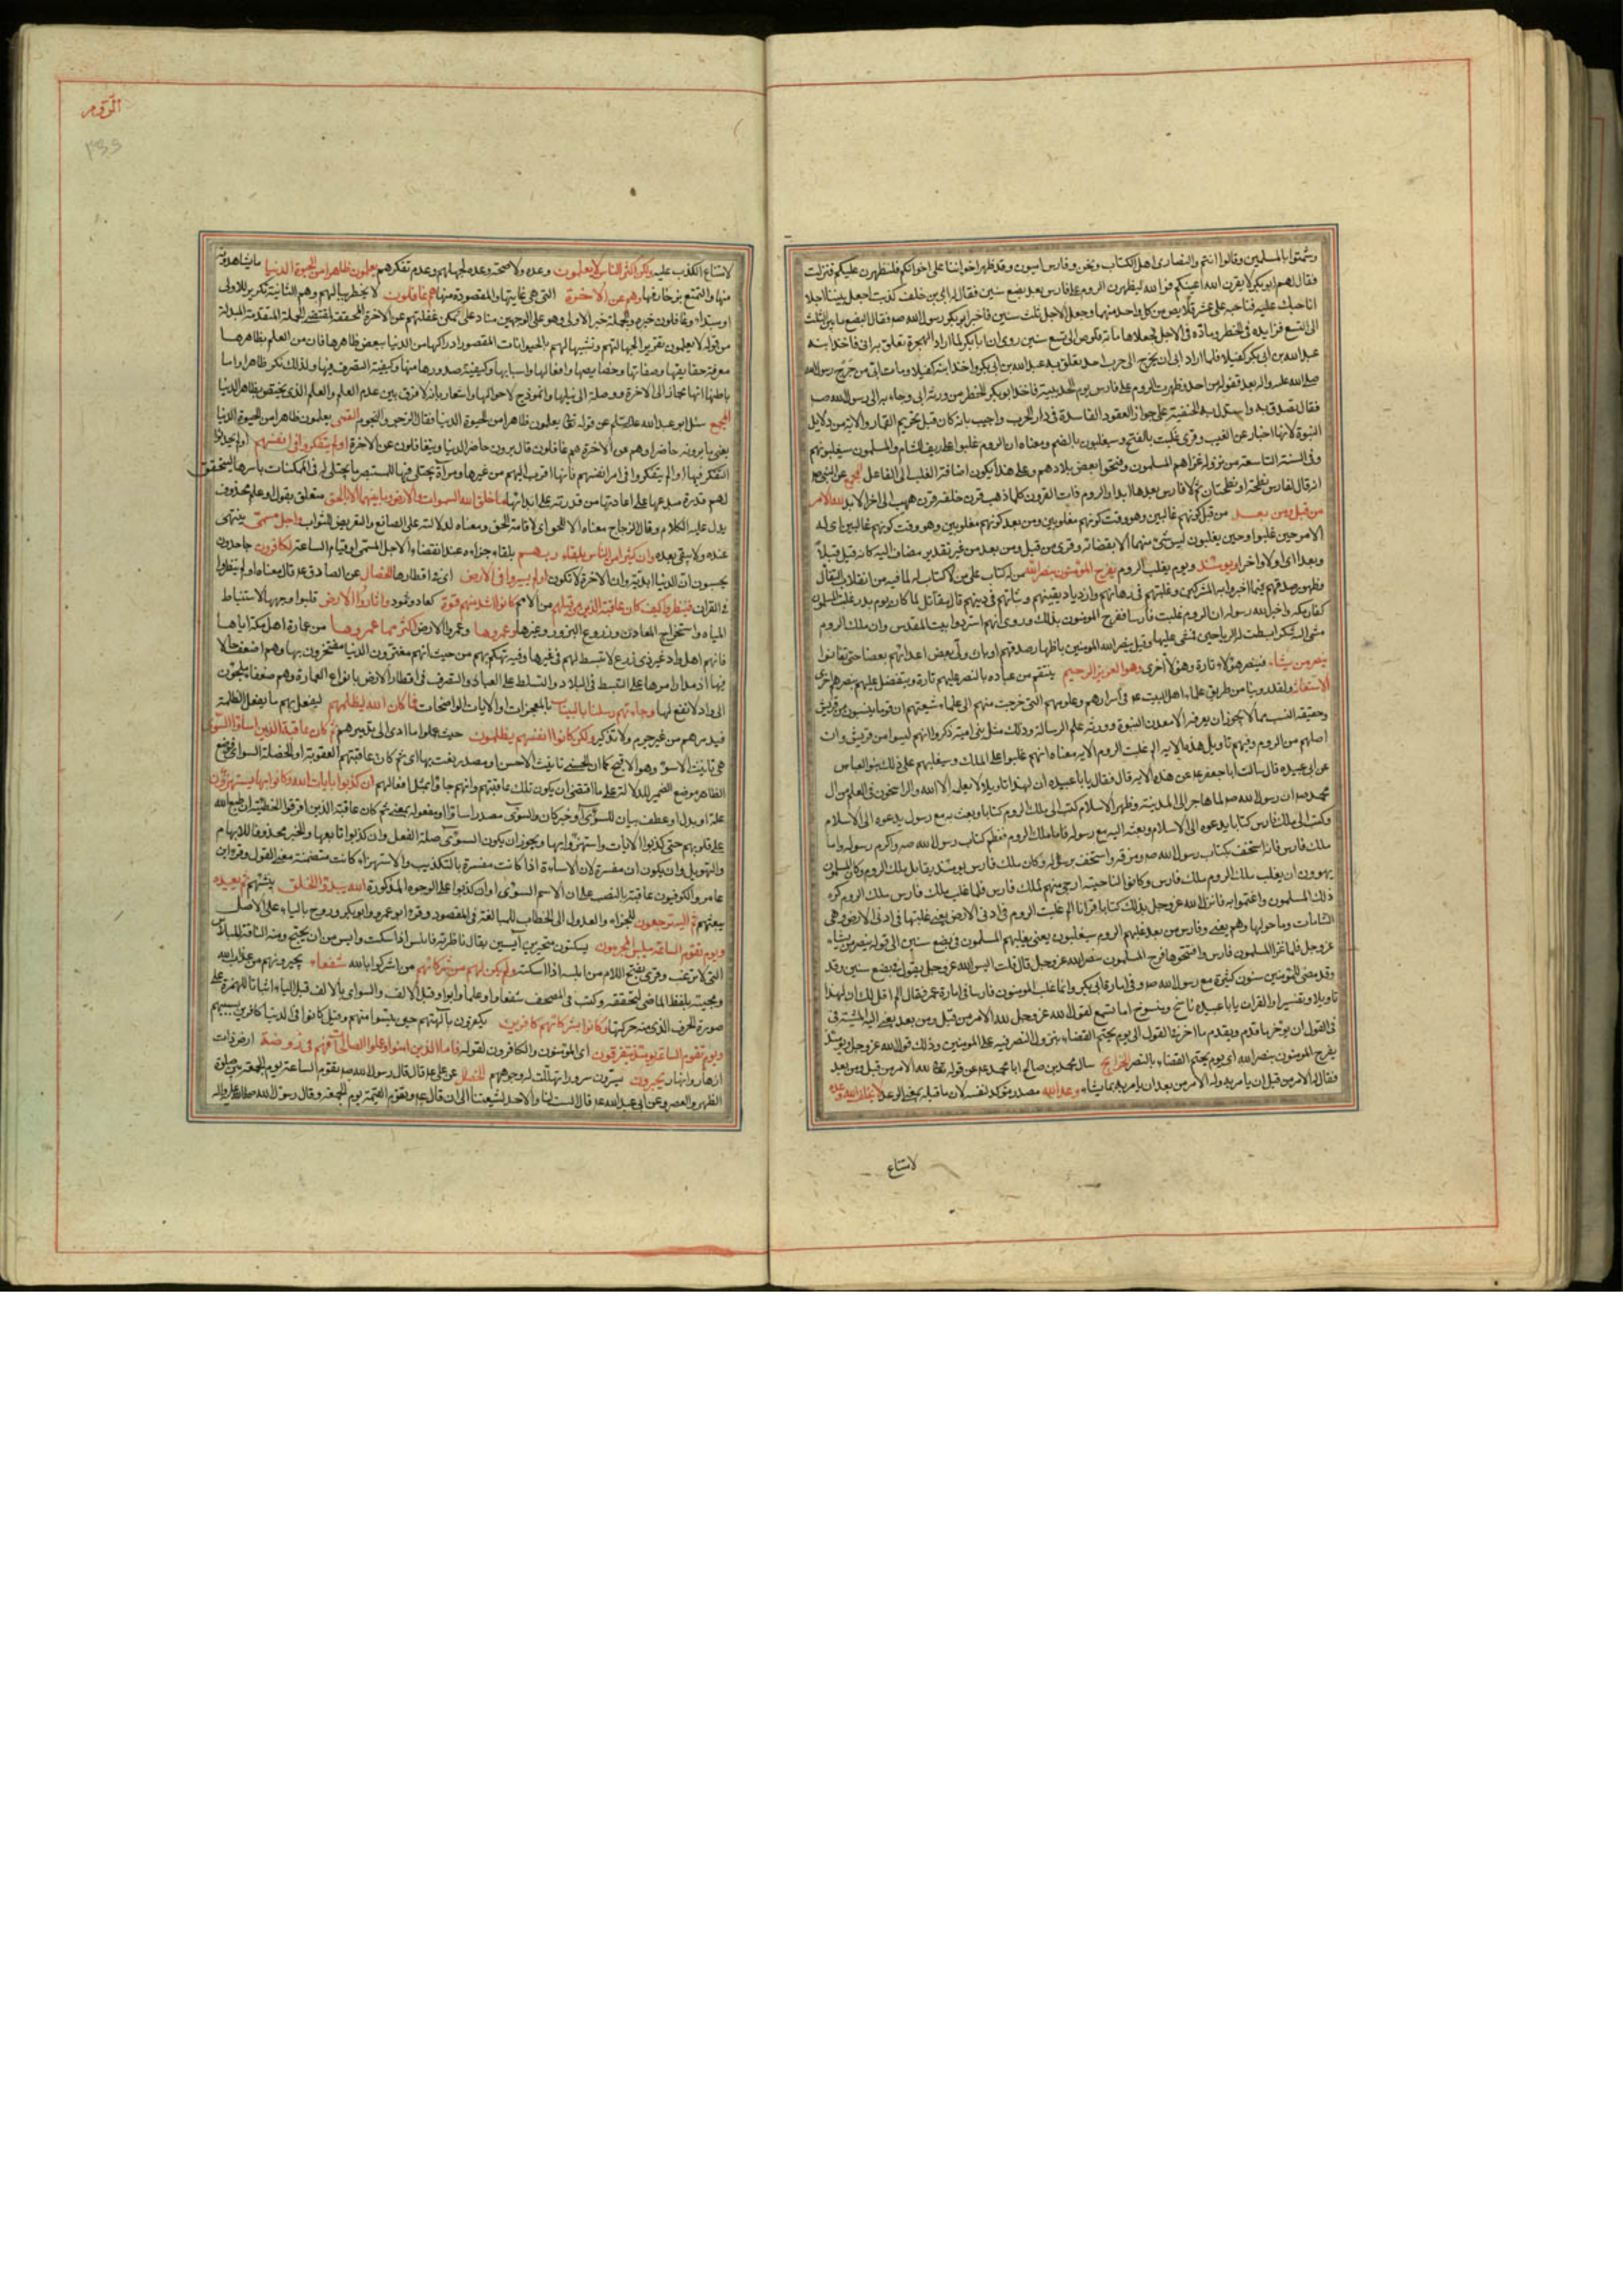 وشمتوا بالمسلمين وقالوا انتم والنصارى اهل الكتاب ونحن وفارس اميون وقد ظهر اخواننا على اخوانكم فلنظهرن عليكم فنزلت
فقال لهم ابو بكر لا يقرن الله اعينكم فوالله ليظهرن الروم على فارس بعد بضع سنين فقال له ابي بن خلف كذبت اجعل بيننا اجلا
اناحبك عليه فناحبه على عشر قلايص من كل واحد منهما وجعلا الاجل ثلث سنين فاخبر ابو بكر رسول الله صم فقال البضع ما بين الثلث
الى التسع فزايده في الخطر وماده في الاجل فجعلاها مائة قلوص الى تسع سنين روى ان ابا بكر لما اراد الهجرة تعلق به ابي فاخذ ابنه
عبد الله بن ابي بكر كفيلا فلما اراد ابي ان يخرج الى حرب احد تعلق به عبد الله بن ابي بكر واخذ ابنه كفيلا ومات ابي من جرح رسول الله
صلى الله عليه واله بعد قفوله من احد وظهرت الروم على فارس يوم الحديبية فاخذ ابو بكر الخطر من ورثة ابي وجاء به الى رسول الله صم
فقال تصدق به واستدل به الحنفية على جواز العقود الفاسدة في دار الحرب واجيب بانه كان قبل تحريم القمار والاية من دلايل
النبوة لانها اخبار عن الغيب وقرى غلبت بالفتح وسيغلبون بالضم ومعناه ان الروم غلبوا على ريف الشام والمسلمون سيغلبونهم
وفي السنة التاسعة من نزوله غزاهم المسلمون وفتحوا بعض بلادهم وعلى هذا يكون اضافة الغلب الى الفاعل المجمع عن النبي صم
انه قال لفارس نطحة او نطحتان ثم لا فارس بعدها ابدا والروم ذات القرون كلما ذهب قرن خلفه قرن هبهب الى اخر الابد لله الامر
من قبل ومن بعد من قبل كونهم غالبين وهو وقت كونهم مغلوبين ومن بعد كونهم مغلوبين وهو وقت كونهم غالبين اي له
الامر حين غلبوا وحين يغلبون ليس شئ منهما الا بقضائه وقرى من قبل ومن بعد من غير تقدير مضاف اليه كانه قيل قبلا
وبعدا اي اولا واخرا ويومئذ ويوم يغلب الروم يفرح المؤمنون بنصر الله من له كتاب على من لا كتاب له لما فيه من انقلاب التفأل
وظهور صدقهم فيما اخبروا به المشركين وغلبتهم في رهانهم وازدياد يقينهم وثباتهم في دينهم قال مقاتل لما كان يوم بدر غلب المسلمون
كفار مكة واخبر الله رسوله ان الروم غلبت فارسا ففرح المؤمنون بذلك وروى انهم استردوا بيت المقدس وان ملك الروم
مشى اليه شكرا بسطت له الرياحين فمشى عليها وقيل بنصر الله المومنين باظهار صدقهم او بان ولى بعض اعدائهم بعضا حتى تفانوا
ينصر من يشاء فينصر هؤلاء تارة وهؤلاء اخرى وهو العزيز الرحيم ينتقم من عباده بالنصر عليهم تارة ويتفضل عليهم بنصرهم اخرى
الاستغاثة ولقد روينا من طريق علماء اهل البيت عم في اسرارهم وعلومهم التي خرجت منهم الى علماء شيعتهم ان قوما ينسبون من قريش
وحقيقة النسب مما لا يجوز ان يعرفه الا معدن النبوة وورثة علم الرسالة وذلك مثل بني امية ذكروا انهم ليسوا من قريش وان
اصلهم من الروم وفيهم تاويل هذه الاية الم غلبت الروم الاية معناه انهم غلبوا على الملك وسيغلبهم على ذلك بنو العباس
عن ابي عبيدة قال سالت ابا جعفر عم عن هذه الاية قال فقال يا ابا عبيدة ان لهذا تاويلا لا يعلمه الا الله والراسخون في العلم من ال
محمد صم ان رسول الله صم لما هاجر الى المدينة وظهر الاسلام كتب الى ملك الروم كتابا وبعث به مع رسول يدعوه الى الاسلام
وكتب الى ملك فارس كتابا يدعوه الى الاسلام وبعثه اليه مع رسوله فاما ملك الروم فعظم كتاب رسول الله صم واكرم رسوله واما
ملك فارس فانه استخف بكتاب رسول الله صم ومزقه واستخف برسوله وكان ملك فارس يومئذ يقاتل ملك الروم وكان المسلمون
يهوون ان يغلب ملك الروم ملك فارس وكانوا لناحيته ارجى منهم لملك فارس فلما غلب ملك فارس ملك الروم كره
ذلك المسلمون واغتموا به فانزل الله عز وجل بذلك كتابا قرانا الم غلبت الروم في ادنى الارض يعني غلبتها في ادنى الارض وهي
الشامات وما حولها وهم يعني وفارس من بعد غلبهم الروم سيغلبون يعني يغلبهم المسلمون في بضع سنين الى قوله ينصر من يشاء
عز وجل فلما غزا المسلمون فارس وافتتحوها فرح المسلمون بنصر الله عز وجل قال قلت اليس الله عز وجل يقول في بضع سنين وقد
وقد مضى للمؤمنين سنون كثيرة مع رسول الله صم وفي امارة ابي بكر وانما غلب المومنون فارسا في امارة عمر فقال الم اقل لك ان لهذا
تاويلا وتفسيرا والقران يا ابا عبيدة ناسخ ومنسوخ اما تسمع لقول الله عز وجل لله الامر من قبل ومن بعد يعني اليه المشية في
في القول ان يوخر ما قدم ويقدم ما اخر في القول الى يوم يحتم القضاء بنزول النصر فيه على المومنين وذلك قول الله عز وجل ويومئذ
يفرح المومنون بنصر الله اي يوم يحتم القضاء بالنصر الخرايج سال محمد بن صالح ابا محمد عم عن قوله تعالى لله الامر من قبل ومن بعد
فقال له الامر من قبل ان يامر به وله الامر من بعد ان يامر به بما يشاء وعد الله مصدر مؤكد لنفسه لان ما قبله بمعنى الوعد لا يخلف الله وعده
لامتناع
الروم
لامتناع الكذب عليه ولكن اكثر الناس لا يعلمون وعده ولا صحة وعده لجهلهم وعدم تفكرهم يعلمون ظاهرا من الحيوة الدنيا ما يشاهدونه
منها والتمتع بزخارفها وهم عن الاخرة التي هي غايتها والمقصودة منها هم غافلون لا يخطر ببالهم وهم الثانية تكرير للاولى
او مبتدا وغافلون خبره والجملة خبر الاولى وهو على الوجهين مناد على تمكن غفلتهم عن الاخرة المحققة لمقتضى الجملة المتقدمة المبدلة
من قوله لا يعلمون تقريرا لجهالتهم وتشبيها لهم بالحيوانات المقصور ادراكها من الدنيا ببعض ظاهرها فان من العلم بظاهرها
معرفة حقايقها وصفاتها وخصايصها وافعالها واسبابها وكيفية صدورها منها وكيفية التصرف فيها ولذلك نكر ظاهرا واما
باطنها انها مجاز الى الاخرة ووصلة الى نيلها وانموذج لاحوالها واشعار بانه لا فرق بين عدم العلم والعلم الذي يختص بظاهر الدنيا
المجمع سئل ابو عبد الله عليه السلام عن قوله تعالى يعلمون ظاهرا من الحيوة الدنيا فقال الزجر والنجوم القمى يعلمون ظاهرا من الحيوة الدنيا
يعني ما يرونه حاضرا وهم عن الاخرة هم غافلون قال يرون حاضر الدنيا ويتغافلون عن الاخرة اولم يتفكروا في انفسهم اولم يحدثوا
التفكر فيها او الم يتفكروا في امر انفسهم فانها اقرب اليهم من غيرها ومرآة يجتلى فيها للمستبصر ما يجتلى له في الممكنات باسرها ليتحقق
لهم قدرة مبدعها على اعادتها من قدرته على ابدائها ما خلق الله السموات والارض وما بينهما الا بالحق متعلق بقول او علم محذوف
يدل عليه الكلام وقال الزجاج معناه الا للحق اي لاقامة الحق ومعناه للدلالة على الصانع والتعريض للثواب واجل مسمى ينتهى
عنده ولا يبقى بعده وان كثيرا من الناس بلقاء ربهم بلقاء جزاءه عند انقضاء الاجل المسمى او قيام الساعة لكافرون جاحدون
يحسبون ان الدنيا ابدية وان الاخرة لا تكون اولم يسيروا في الارض اي في اقطارها الخصال عن الصادق عم قال معناه اولم ينظروا
في القران فينظروا كيف كان عاقبة الذين من قبلهم من الامم كانوا اشد منهم قوة كعاد وثمود واثاروا الارض قلبوا وجهها لاستنباط
المياه واستخراج المعادن وزروع البزور وغيرها وعمروها وعمروا الارض اكثر مما عمروها من عمارة اهل مكة اياها
فانهم اهل واد غير ذي زرع لا تبسط لهم في غيرها وفيه تهكم بهم من حيث انهم مغترون الدنيا مفتخرون بها وهم اضعف حالا
فيها اذ مدار امرها على التبسط في البلاد والتسلط على العباد والتصرف في اقطار الارض بانواع العمارة وهم ضعفاء ملجؤن
الى واد لا نفع لها وجاءتهم رسلنا بالبينات بالمعجزات او الايات الواضحات فما كان الله ليظلمهم ليفعل بهم ما يفعل الظلمة
فيدمرهم من غير جرم ولا تذكير ولكن كانوا انفسهم يظلمون حيث عملوا ما ادى الى تدميرهم ثم كان عاقبة الذين اساؤا السوأى
هي تانيث الاسوء وهو الاقبح كما ان الحسنى تانيث الاحسن او مصدر نعت بها اي ثم كان عاقبتهم العقوبة او الخصلة السوأى فوضع
الظاهر موضع الضمير للدلالة على ما اقتضى ان يكون تلك عاقبتهم وانهم جاؤا بمثل افعالهم ان كذبوا بايات الله وكانوا بها يستهزؤن
علة او بدل او عطف بيان للسوأى او خبر كان والسوأى مصدر اساؤا او مفعوله بمعنى ثم كان عاقبة الذين اقترفوا الخطيئة ان طبع الله
على قلوبهم حتى كذبوا الايات واستهزؤا بها ويجوز ان يكون السوأى صلة الفعل وان كذبوا تابعها والخبر محذوفا للابهام
والتهويل وان يكون ان مفسرة لان الاساءة اذا كانت مفسرة بالتكذيب والاستهزاء كانت متضمنة معنى القول وقرء ابن
عامر والكوفيون عاقبة بالنصب على ان الاسم السوأى او ان كذبوا على الوجوه المذكورة الله يبدؤ الخلق ينشئهم ثم يعيده
يبعثهم ثم اليه ترجعون للجزاء والعدول الى الخطاب للمبالغة في المقصود وقرء ابو عمرو وابو بكر وروح بالياء على الاصل
ويوم تقوم الساعة يبلس المجرمون يسكتون متحيرين آيسين يقال ناظرته فابلس اذا سكت وايس من ان يحتج ومنه الناقة المبلاس
التي لا ترغو وقرى بفتح اللام من ابلسه اذا اسكته ولم يكن لهم من شركائهم من اشركوا بالله شفعاء يجيرونهم من عذاب الله
ومجيئه بلفظ الماضي لتحققه وكتب في المصحف شفعاوا وعلماوا بواو قبل الالف والسوأى بالالف قبل الياء اثباتا للهمزة على
صورة الحرف الذي منه حركتها وكانوا بشركائهم كافرين يكفرون بآلهتهم حين يئسوا منهم وقيل كانوا في الدنيا كافرين بسببهم
ويوم تقوم الساعة يومئذ يتفرقون اي المؤمنون والكافرون لقوله فاما الذين امنوا وعملوا الصالحات فهم في روضة ارض ذات
ازهار وانهار يحبرون يسرون سرورا تهللت له وجوههم الخصال عن علي عم قال قال رسول الله صم تقوم الساعة يوم الجمعة بين صلوة
الظهر والعصر وعن ابي عبد الله عم قال السبت لنا والاحد لشيعتنا الى ان قال عم وتقوم القيمة يوم الجمعة وقال رسول الله صلى الله عليه واله